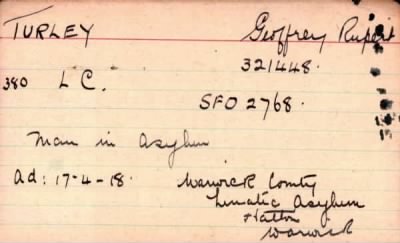 TURLEY Geoffrey Rupert
321448.
380 L C.
SFO 2768.
Man in Asylum
Ad: 17-4-18. Warwick County
Lunatic Asylum
Hatton
Warwick